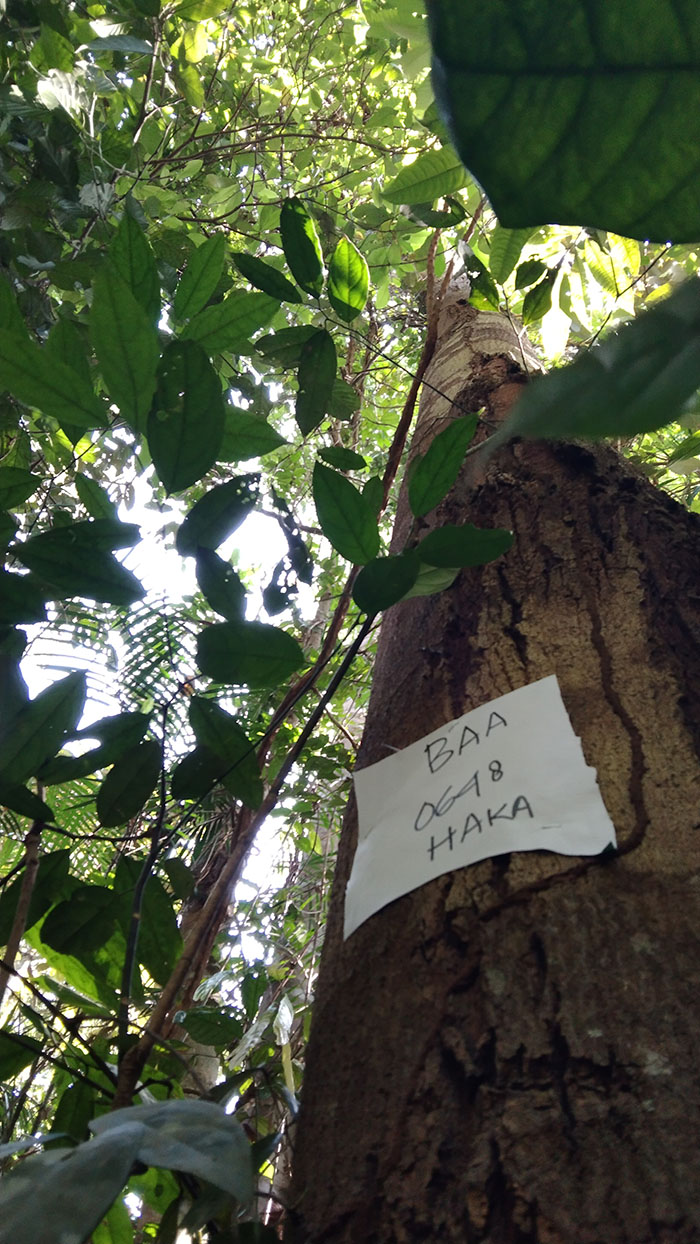 BAA
0648
HAKA